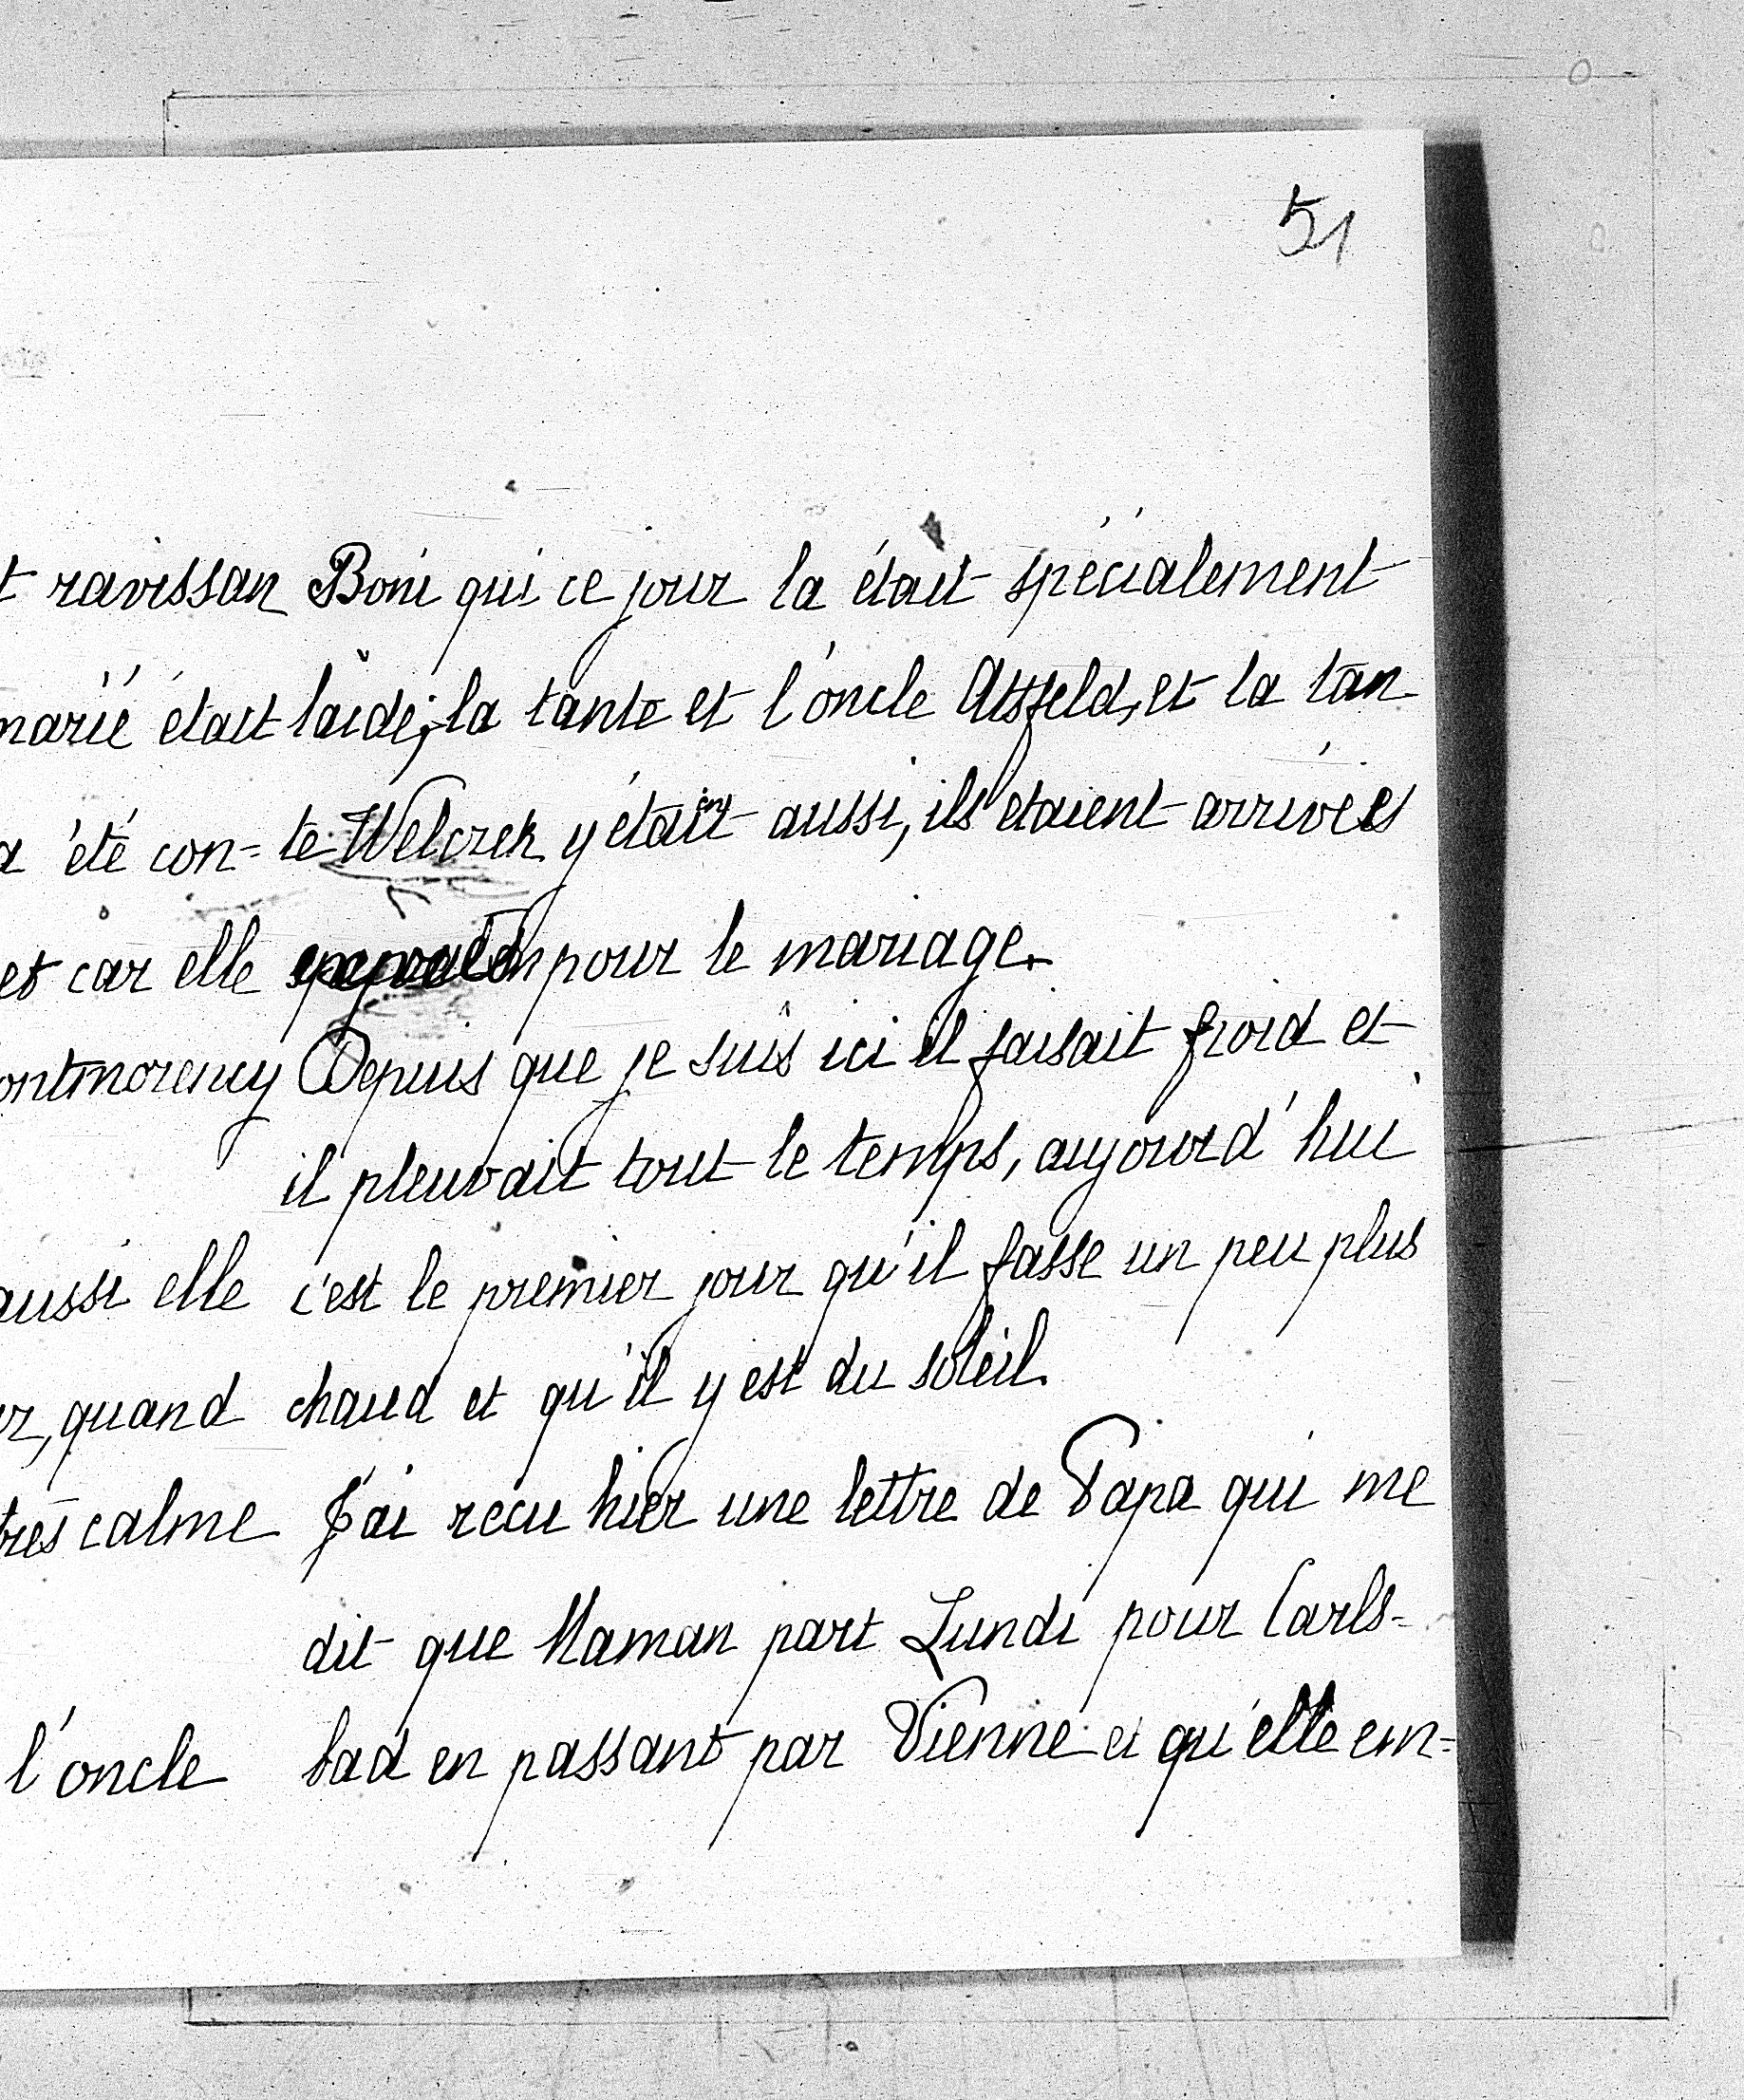 51
t ravissan
marié était
a été con-
et car elle
ontmorency
aussi elle
r, quand
très calme
l'oncle
Boni qui ce jour la était spécialement
laide; la tante et l'oncle Atsfeld, et la tan
te Welczek y était aussi, ils etaient arrivées
pour le mariage.
Depuis que je suis ici il faisait froid et
il pleuvait tout le temps, aujourd'hui
c'est le premier jour qu'il fasse un peu plus
chaud et qu'il y est du soleil.
J'ai recu hier une lettre de Papa qui me
dit que Maman part Lundi pour Carls-
bad en passant par Vienne et qu'elle em-